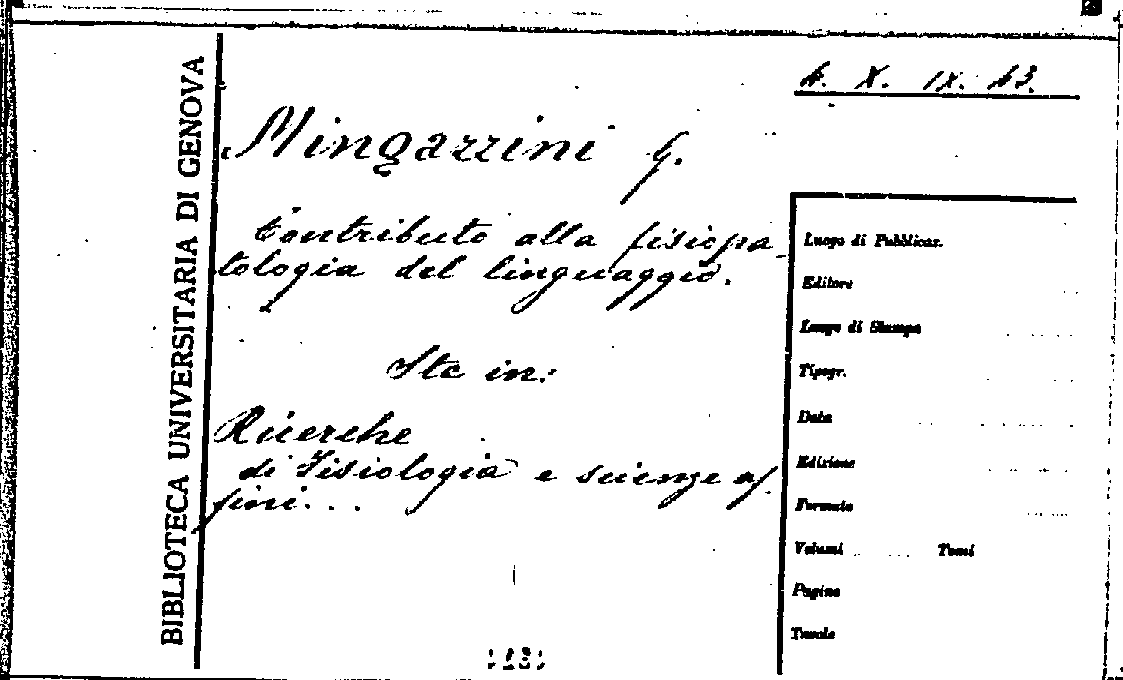 4. X. IX. 43.
BIBLIOTECA UNIVERSITARIA DI GENOVA
Mingazzini G.
Contributo alla fisiopa-
tologia del linguaggio.
Sta in:
Ricerche
di Fisiologia e scienze af-
fini...
Luogo di Pubblicaz.
Editore
Luogo di Stampa
Tipogr.
Data
Edizione
Formato
Volumi Tomi
Pagine
Tavole